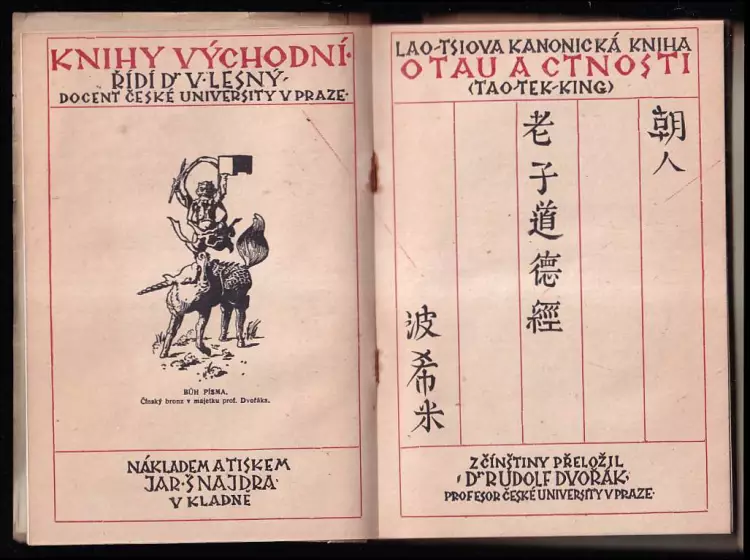 KNIHY VÝCHODNÍ·
ŘÍDÍ Dr V·LESNÝ·
DOCENT ČESKÉ UNIVERSITY V PRAZE·
BŮH PÍSMA.
Čínský bronz v majetku prof. Dvořáka.
NÁKLADEM A TISKEM
JAR·ŠNAJDRA·
V KLADNĚ
LAO-TSIOVA KANONICKÁ KNIHA
O TAU A CTNOSTI
(TAO-TEK-KING)
朝人
老子道德經
波希米
Z ČÍNŠTINY PŘELOŽIL
·Dr RUDOLF DVOŘÁK·
PROFESOR ČESKÉ UNIVERSITY V PRAZE·